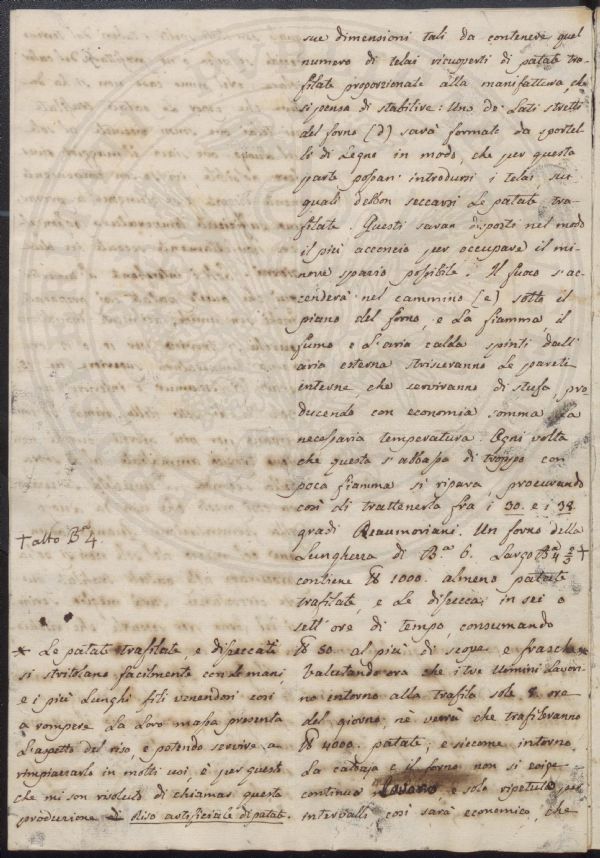 sue dimensioni tali da contenere quel
numero di telai ricuoperti di patate tra-
filate proporzionale alla manifattura, che
si pensa di stabilire: Uno de' Lati stretti
del forno (d) sarà formato da sportel-
li di Legno in modo, che per questa
parte possan' introdursi i telai sui
quali debbon seccarsi Le patate tra-
filate. Questi saran disposti nel modo
il più acconcio per occupare il mi-
nore spazio possibile. Il fuoco s'ac-
cenderà nel cammino (e) sotto il
piano del forno, e La fiamma, il
fumo e L'aria calda spinti dall'
aria esterna strisceranno Le pareti
interne, che serviranno di stufa pro
ducendo con economia somma La
necessaria temperatura. Ogni volta
che questa s'abbassa di troppo con
poca fiamma si ripara, procurando
così di trattenerla fra i 30. e i 38.
gradi Reaumoriani. Un forno della
Lunghezza di B.a 6. Largo B.a 4 2/3 +
contiene ℔ 1000. almeno patate
trafilate, e Le dissecca in sei o
sett' ore di tempo, consumando
℔ 50. al più di scope e frasche *
Valutando ora che i tre Uomini Lavori-
no intorno alla trafila sole 8. ore
del giorno, ne verrà che trafileranno
℔ 4000. patate; e siccome intorno
La caldaja e il forno non si esige
continuo Lavoro e solo ripetuto per
intervalli così sarà economico, che
+ alto B.a 4
* Le patate trafilate, e disseccate
si stritolano facilmente con Le mani,
e i più Lunghi fili venendosi così
a rompere La Loro massa presenta
L'aspetto del riso, e potendo servire a
rimpiazzarlo in molti usi, è per questo
che mi son risoluto di chiamar questa
produzione di Riso artificiale di patate.